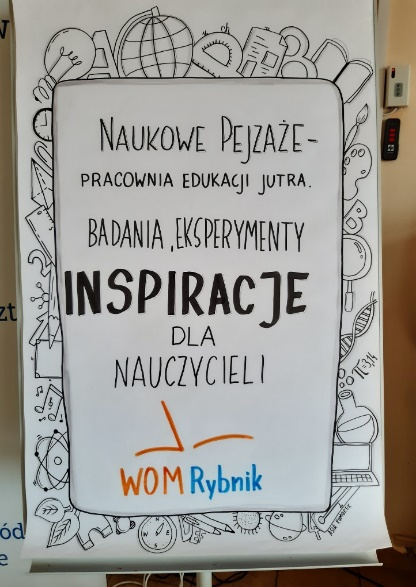 NAUKOWE PEJZAŻE-
PRACOWNIA EDUKACJI JUTRA.
BADANIA, EKSPERYMENTY
INSPIRACJE
DLA
NAUCZYCIELI
WOM Rybnik
π=3,14
zt
ód
e